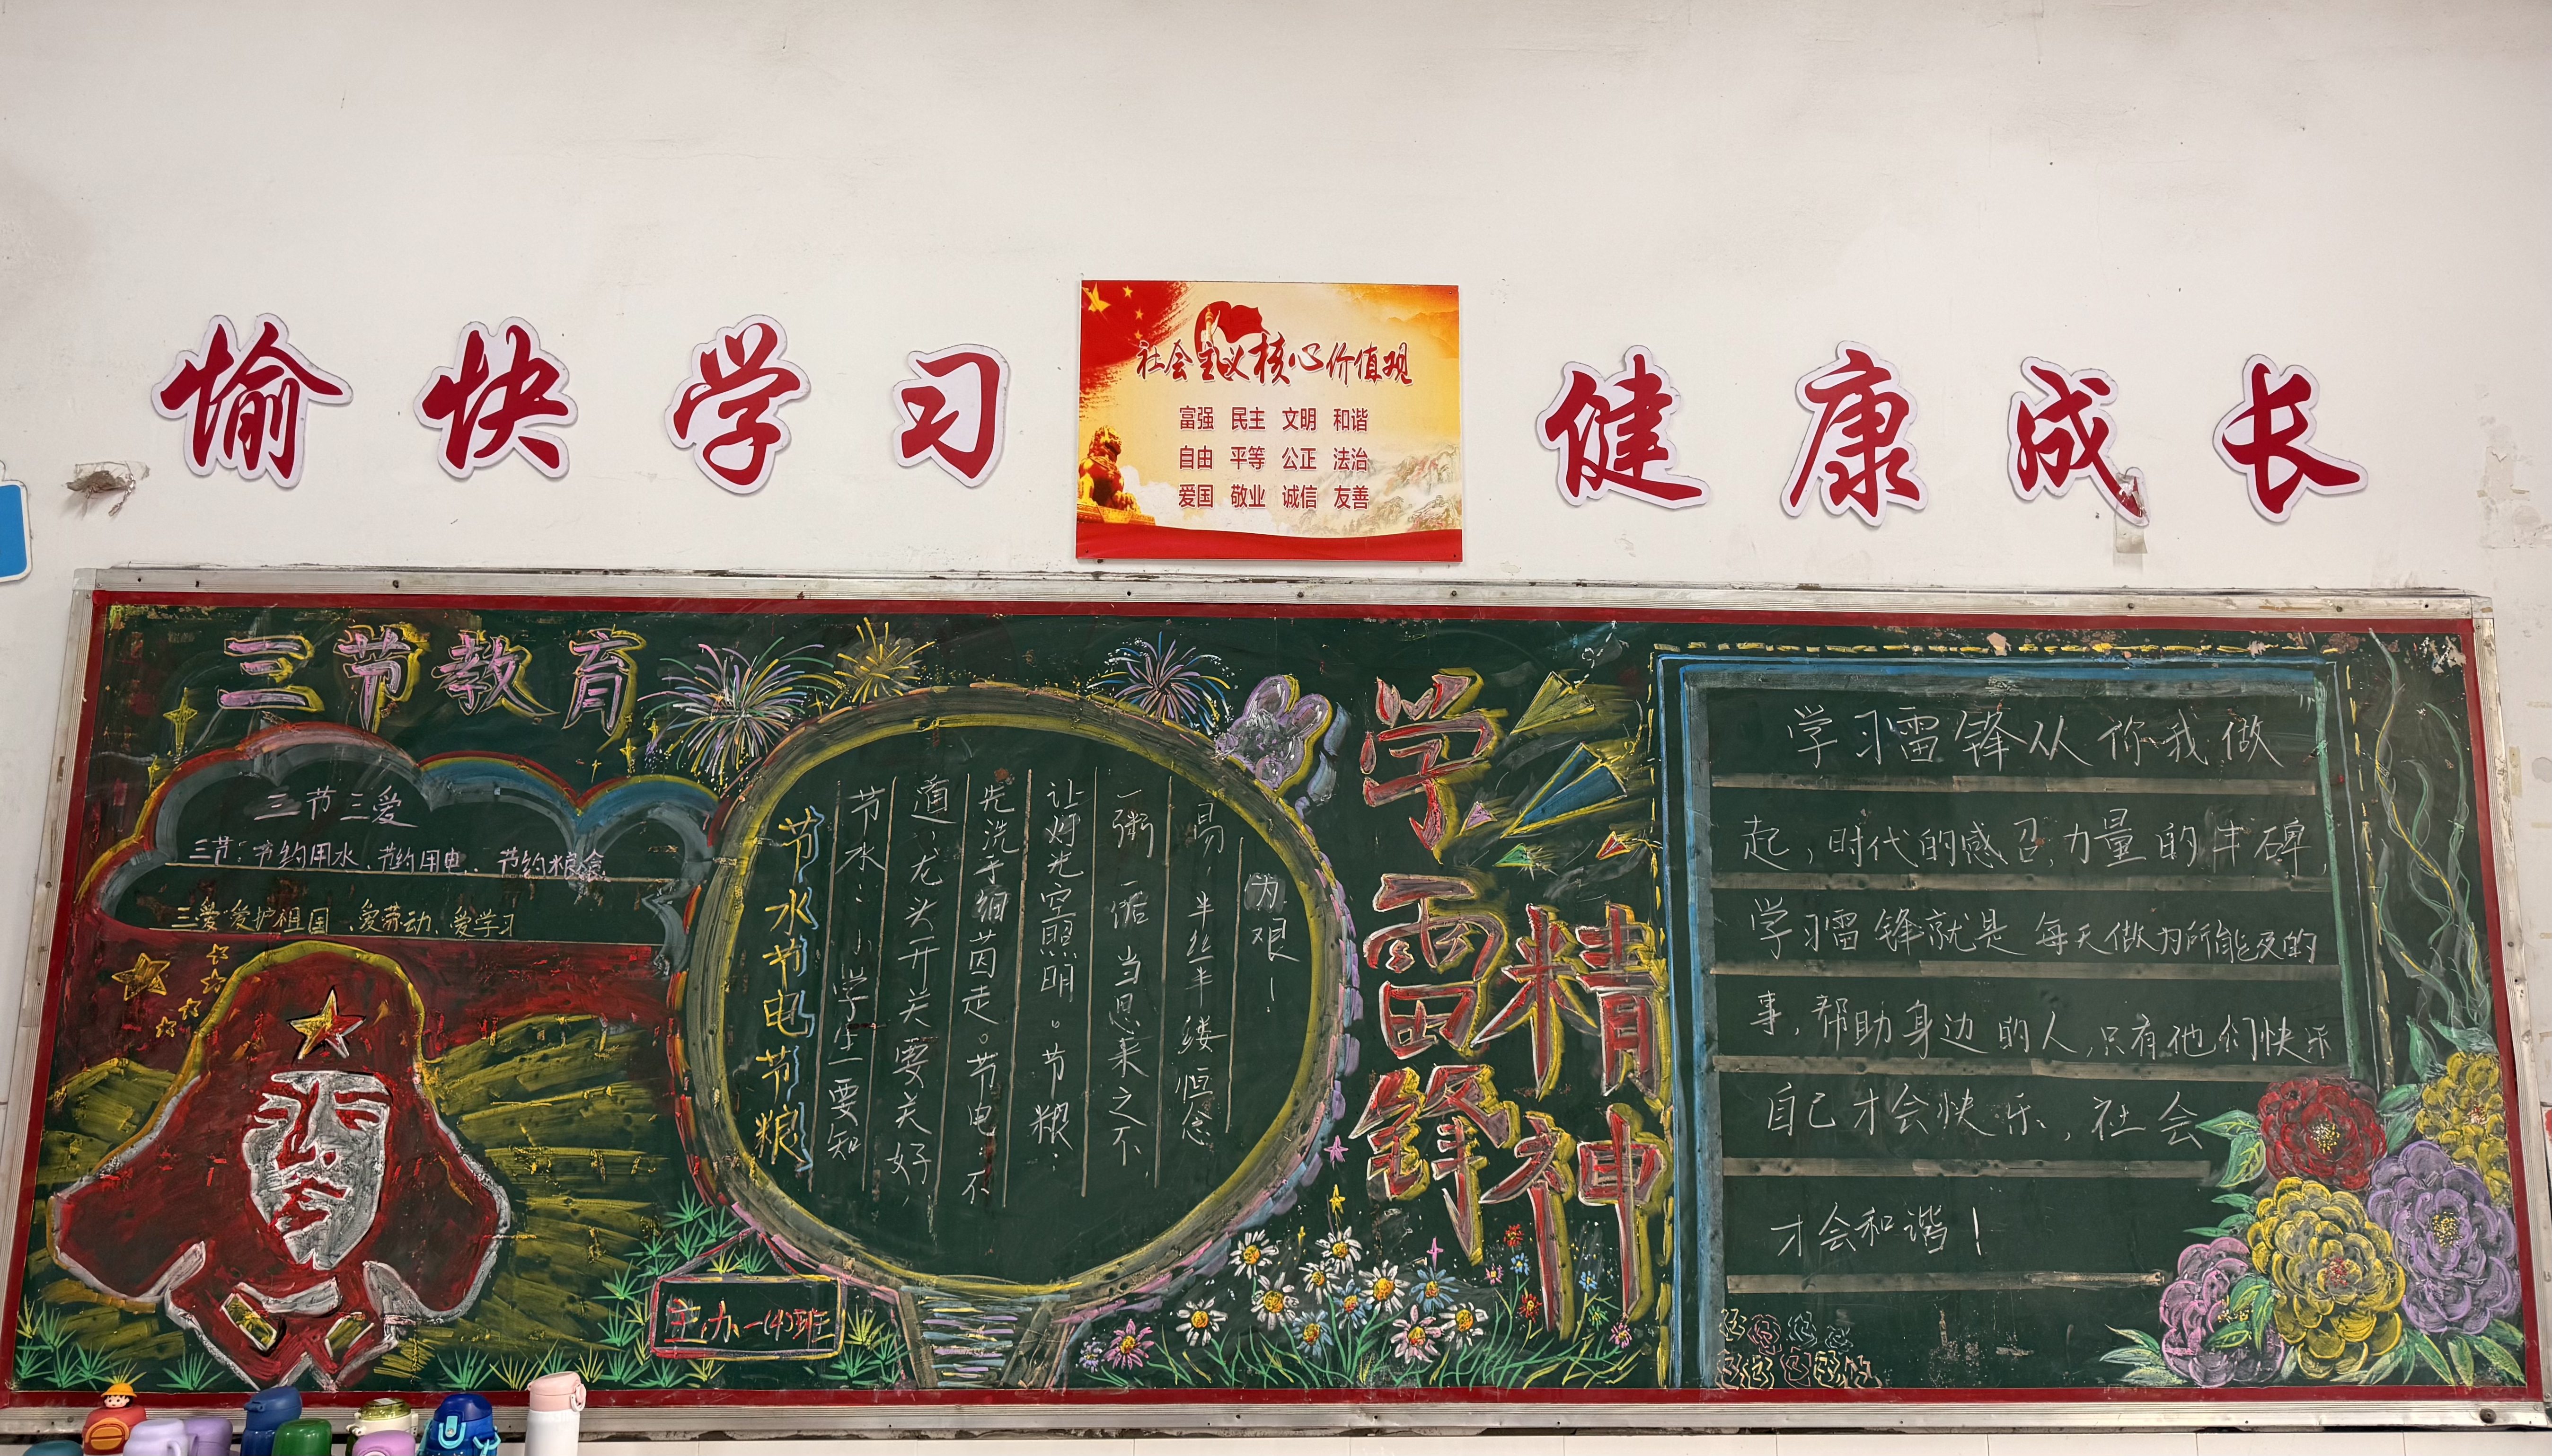 愉快学习
社会主义核心价值观
富强 民主 文明 和谐
自由 平等 公正 法治
爱国 敬业 诚信 友善
健康成长
三节教育
三节三爱
三节:节约用水、节约用电、节约粮食
三爱 爱护祖国、爱劳动、爱学习
节水节电节粮
节水:小学生要知
道,龙头开关要关好,
先洗手细菌走。节电:不
让灯光空照明。节粮:
一粥一饭当思来之不
易,半丝半缕恒念
为艰!
主办一(4)班
学雷锋
精神
学习雷锋从你我做
起,时代的感召,力量的丰碑,
学习雷锋就是每天做力所能及的
事,帮助身边的人,只有他们快乐
自己才会快乐,社会
才会和谐!